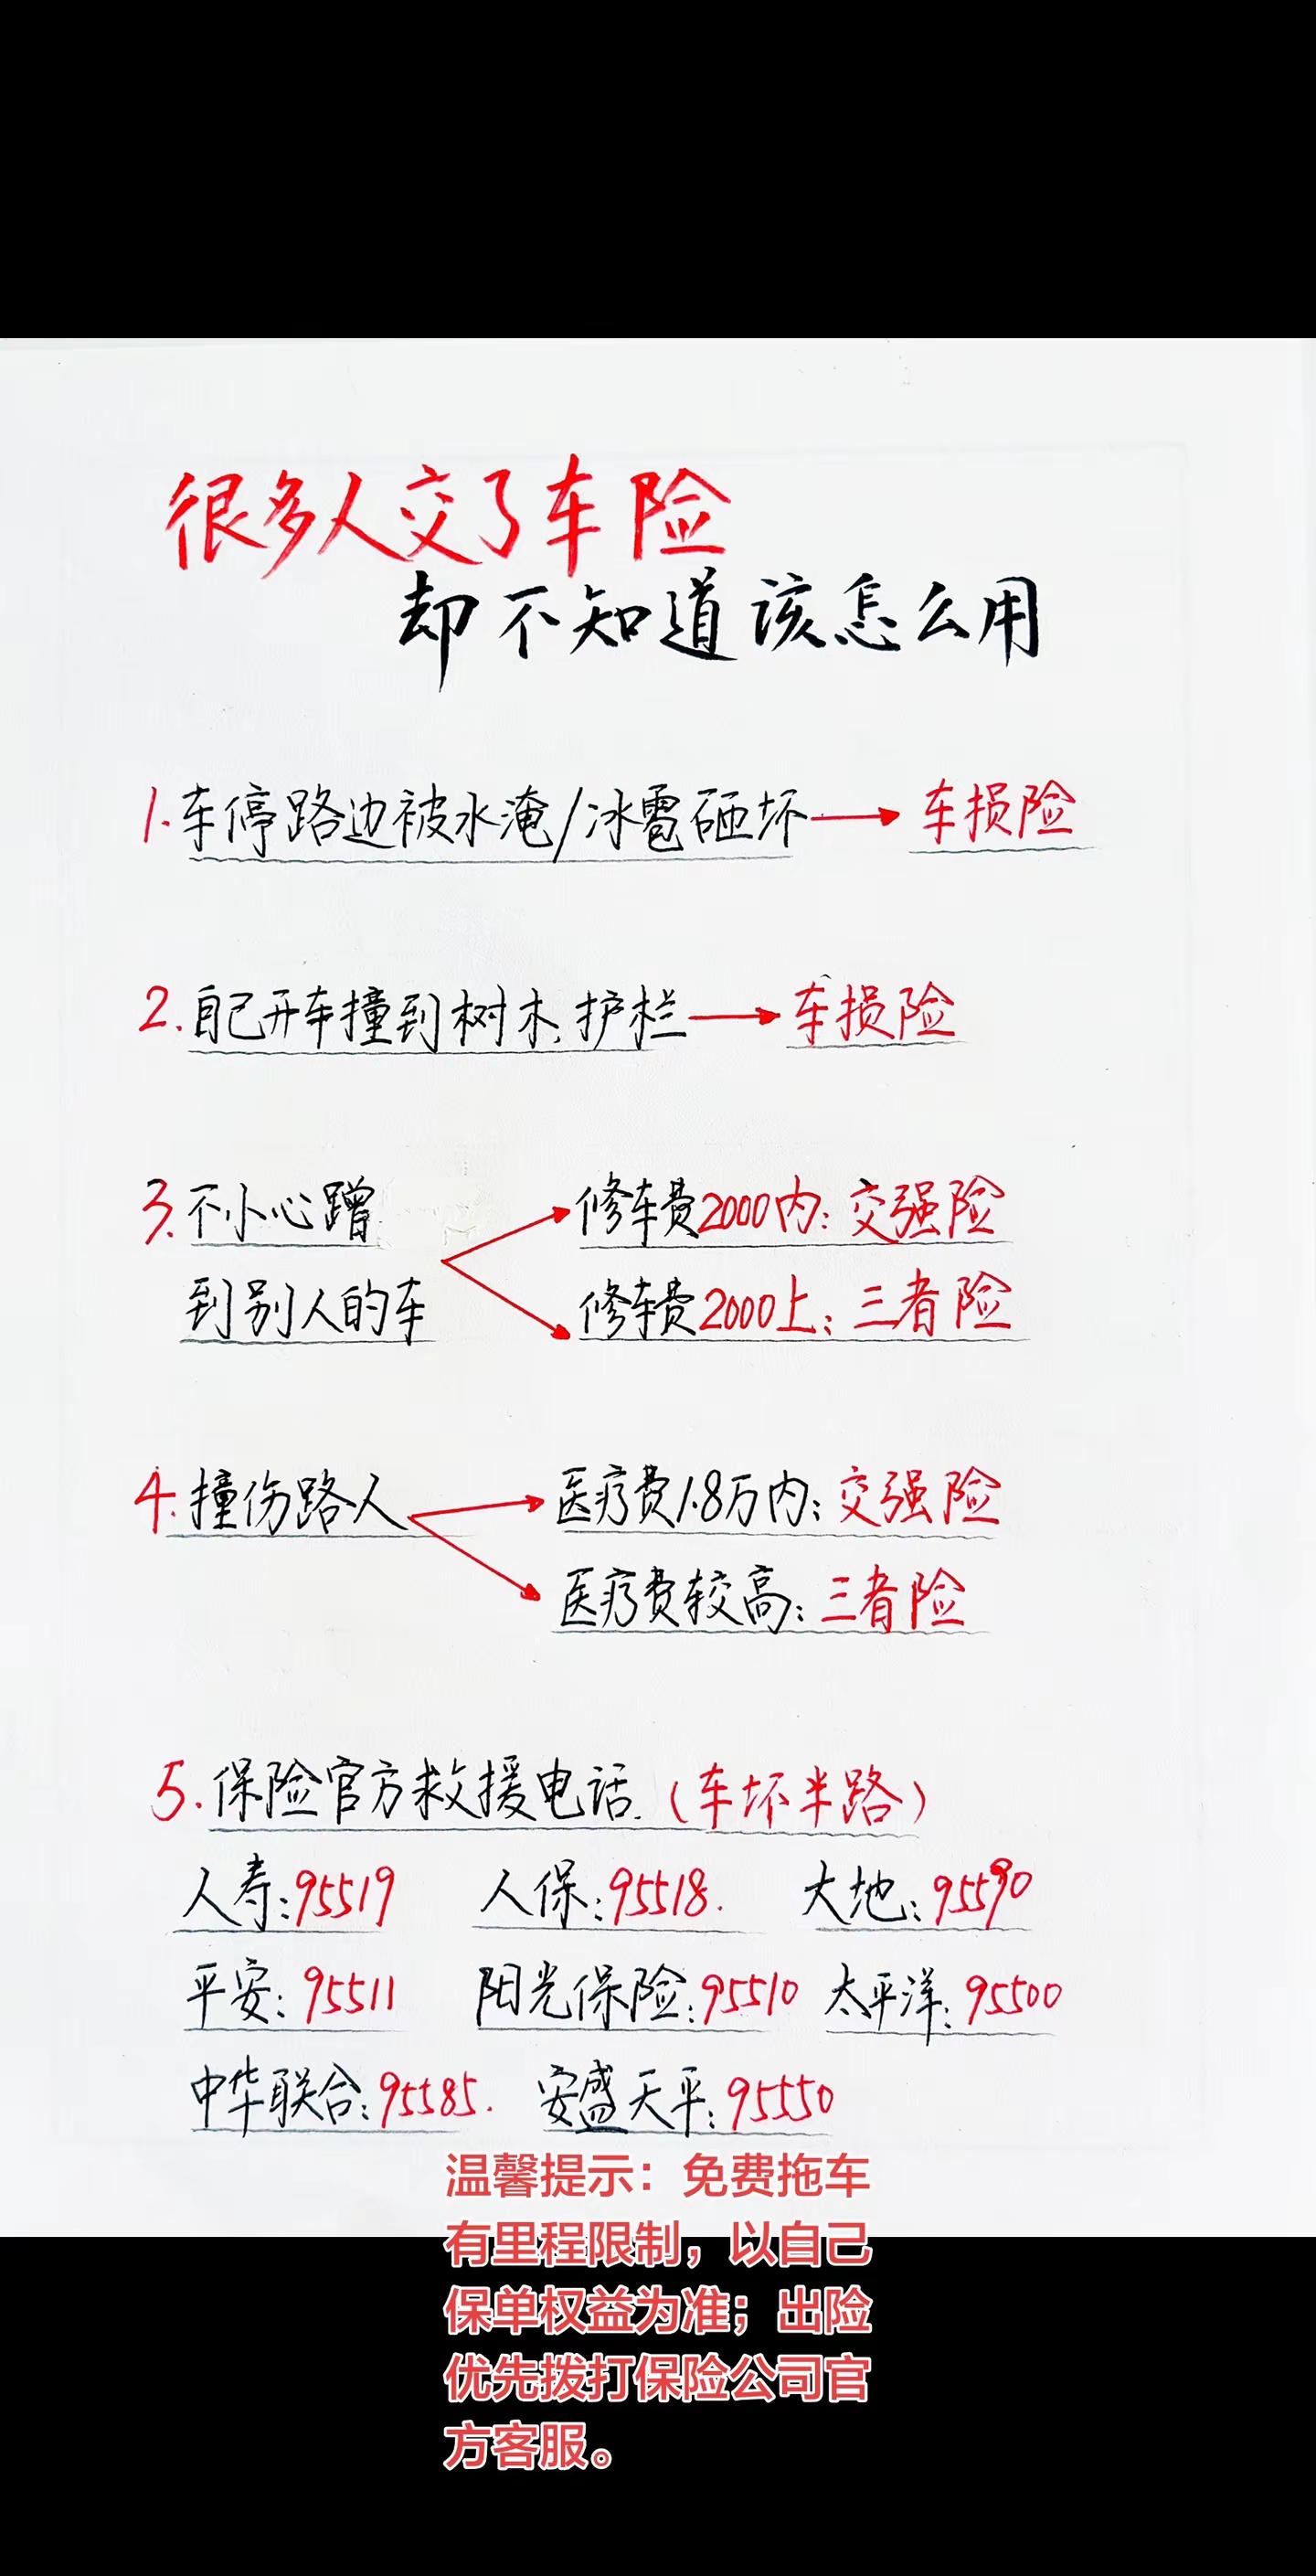 很多人交了车险
却不知道该怎么用
1.车停路边被水淹/冰雹砸坏→车损险
2.自己开车撞到树木、护栏→车损险
3.不小心蹭到别人的车
修车费2000内:交强险
修车费2000上:三者险
4.撞伤路人
医疗费1.8万内:交强险
医疗费较高:三者险
5.保险官方救援电话.(车坏半路)
人寿:95519 人保:95518. 大地:95590
平安:95511 阳光保险:95510 太平洋:95500
中华联合:95585. 安盛天平:95550
温馨提示：免费拖车
有里程限制，以自己
保单权益为准；出险
优先拨打保险公司官
方客服。